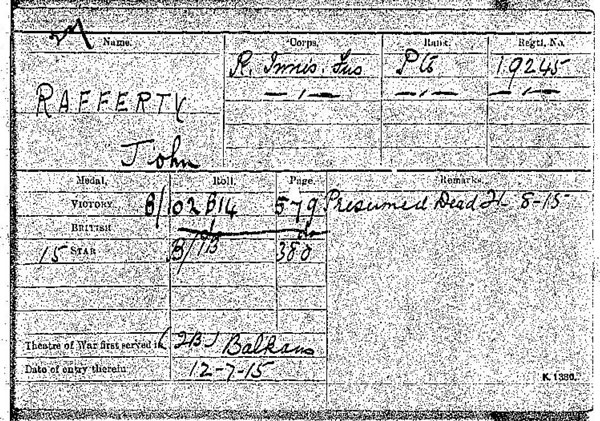 Name. Corps. Rank. Regtl. No.
R. Innis. Fus Pte 19245
RAFFERTY — " — — " — — " —
John
Medal. Roll. Page Remarks.
VICTORY B/102 B14 579 Presumed Dead 8-15
BRITISH do do
15 STAR B/1B 380
Theatre of War first served in (2B) Balkans
Date of entry therein 12-7-15
K. 1380.